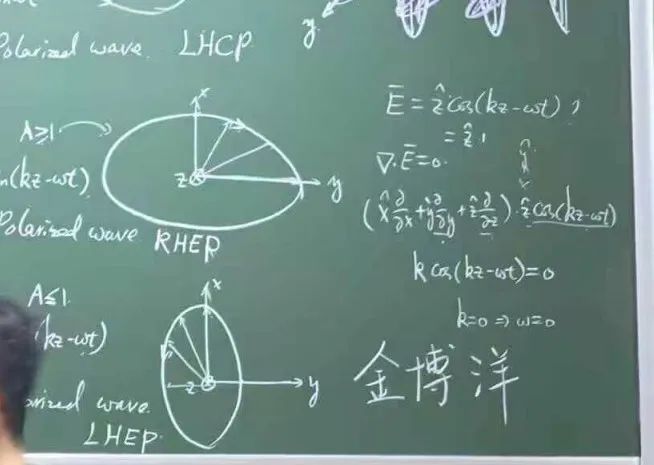 Polarized wave. LHCP
y
x
A≥1
z
y
n(kz-ωt)
Polarized wave RHEP
A≤1.
x
(kz-ωt)
z
y
rized wave.
LHEP.
Ē = ẑ cos(kz-ωt) ?
= ẑ.
∇·Ē=0.
(x̂ ∂/∂x + ŷ ∂/∂y + ẑ ∂/∂z)·ẑ cos(kz-ωt)
k cos(kz-ωt)=0
k=0 ⇒ ω=0
金博洋